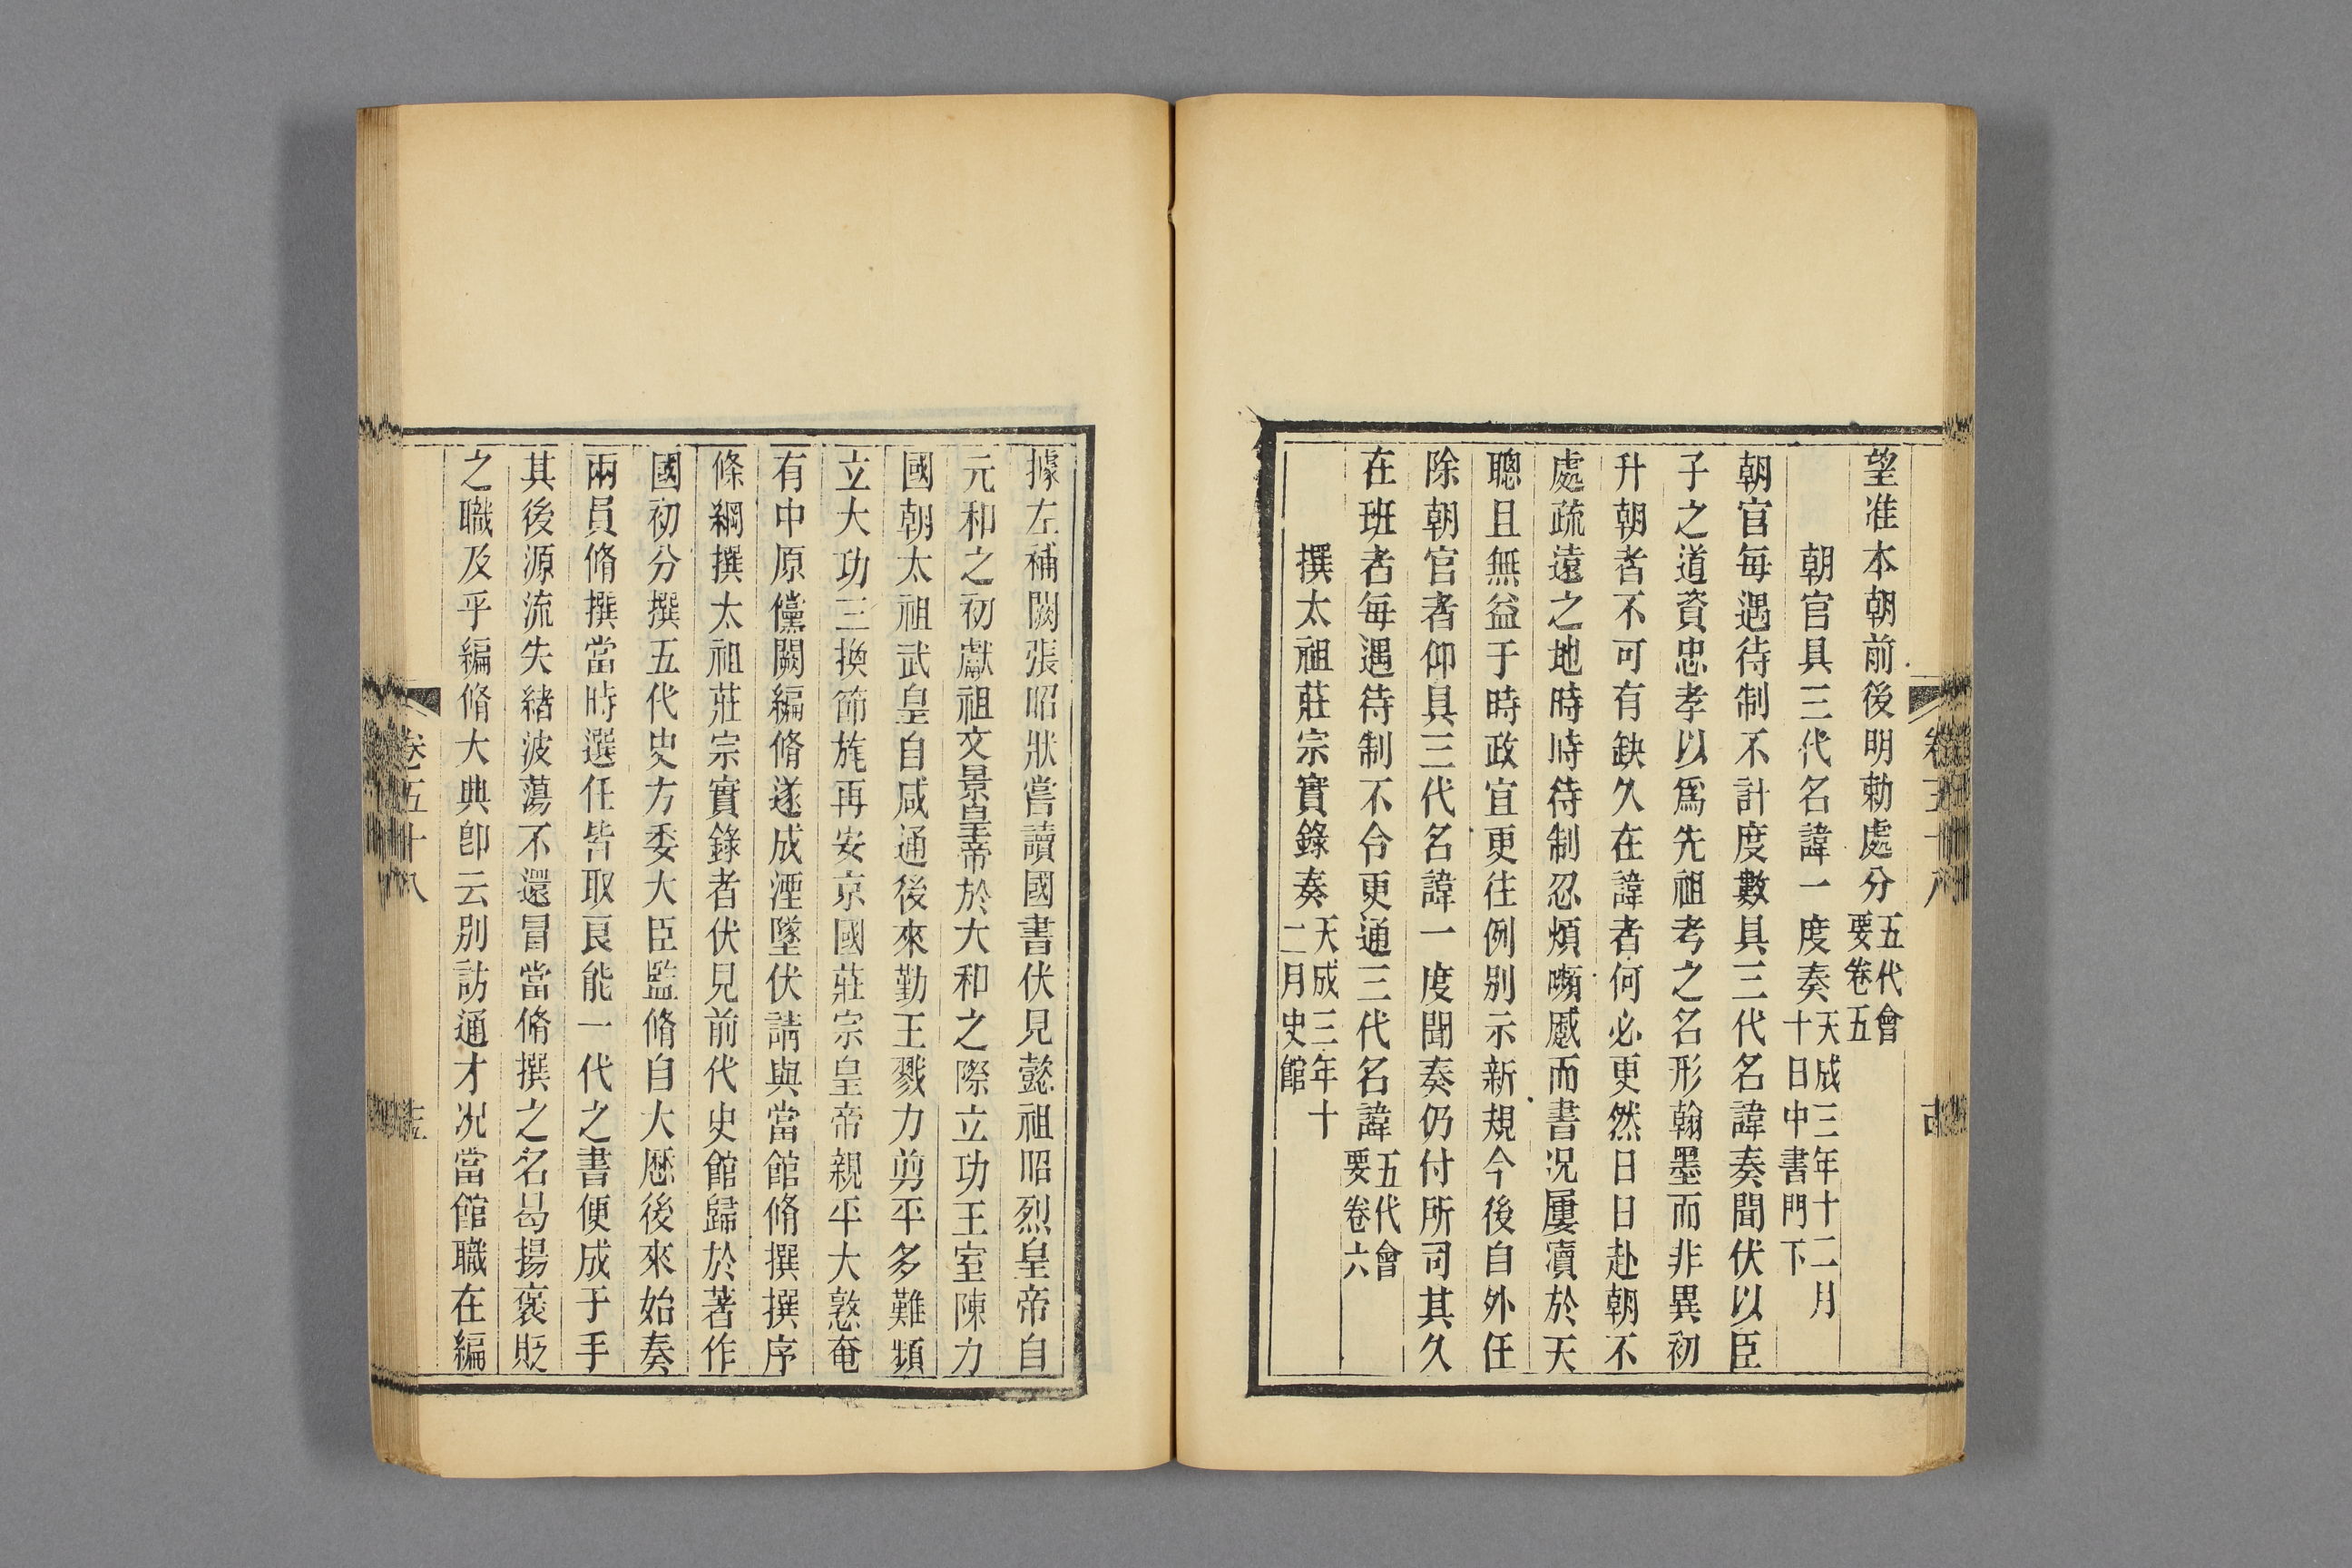 望准本朝前後明勅處分五代會要卷五
朝官具三代名諱一度奏天成三年十二月十日中書門下
朝官每遇待制不計度數具三代名諱奏聞伏以臣
子之道資忠孝以爲先祖考之名形翰墨而非異初
升朝者不可有缺久在諱者何必更然日日赴朝不
處疏遠之地時時待制忍煩嚬慼而書况屢瀆於天
聰且無益于時政宜更往例別示新規今後自外任
除朝官者仰具三代名諱一度聞奏仍付所司其久
在班者每遇待制不合更通三代名諱五代會要卷六
撰太祖莊宗實錄奏天成三年十二月史館
據左補闕張昭狀嘗讀國書伏見懿祖昭烈皇帝自
元和之初獻祖文景皇帝於大和之際立功王室陳力
國朝太祖武皇自咸通後來勤王戮力剪平多難頻
立大功三換節旄再安京國莊宗皇帝親平大憝奄
有中原儻闕編脩遂成湮墜伏請與當館脩撰撰序
條綱撰太祖莊宗實錄者伏見前代史館歸於著作
國初分撰五代史方委大臣監脩自大厯後來始奏
兩員脩撰當時選任皆取良能一代之書便成于手
其後源流失緒波蕩不還冒當脩撰之名曷揚褒貶
之職及乎編脩大典卽云別訪通才况當館職在編
卷五十八